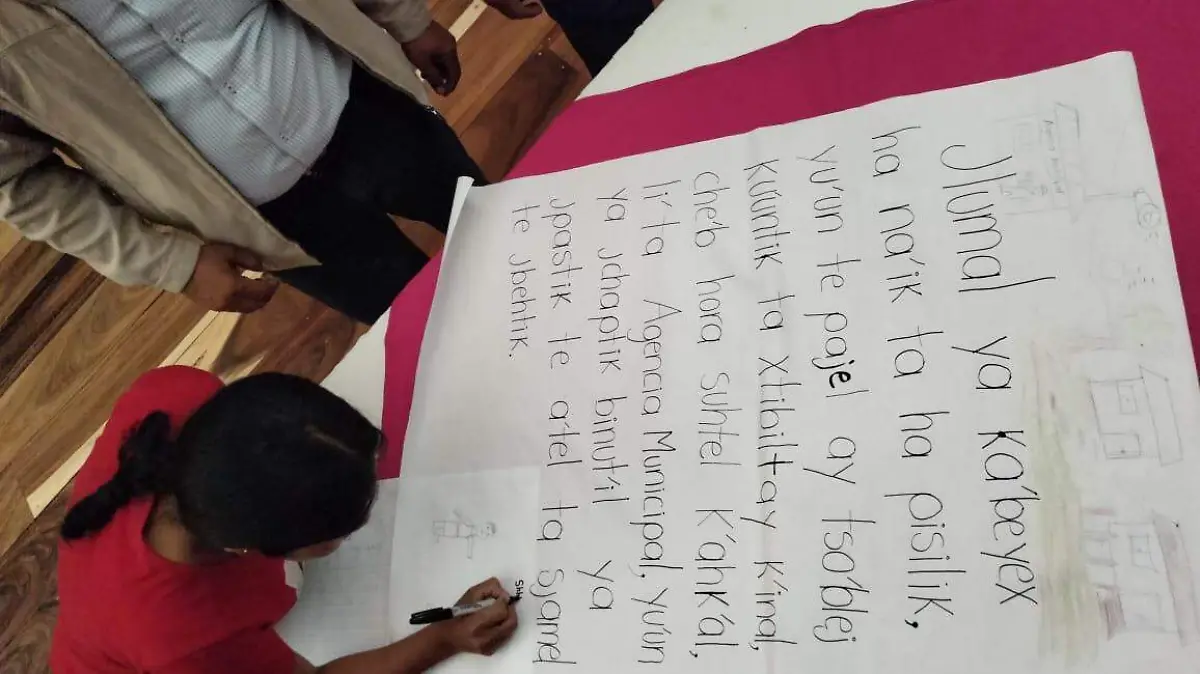 Jlumal ya ka'beyex
ha na'ik ta ha pisilik,
yu'un te pajel ay tso'blej
ku'untik ta xtibilta y k'inal,
cheb hora suhtel k'ahk'al,
li' ta Agencia Municipal, yu'un
ya jchaptik binut'il ya
jpastik te a'tel ta sjamel
te jbehtik.